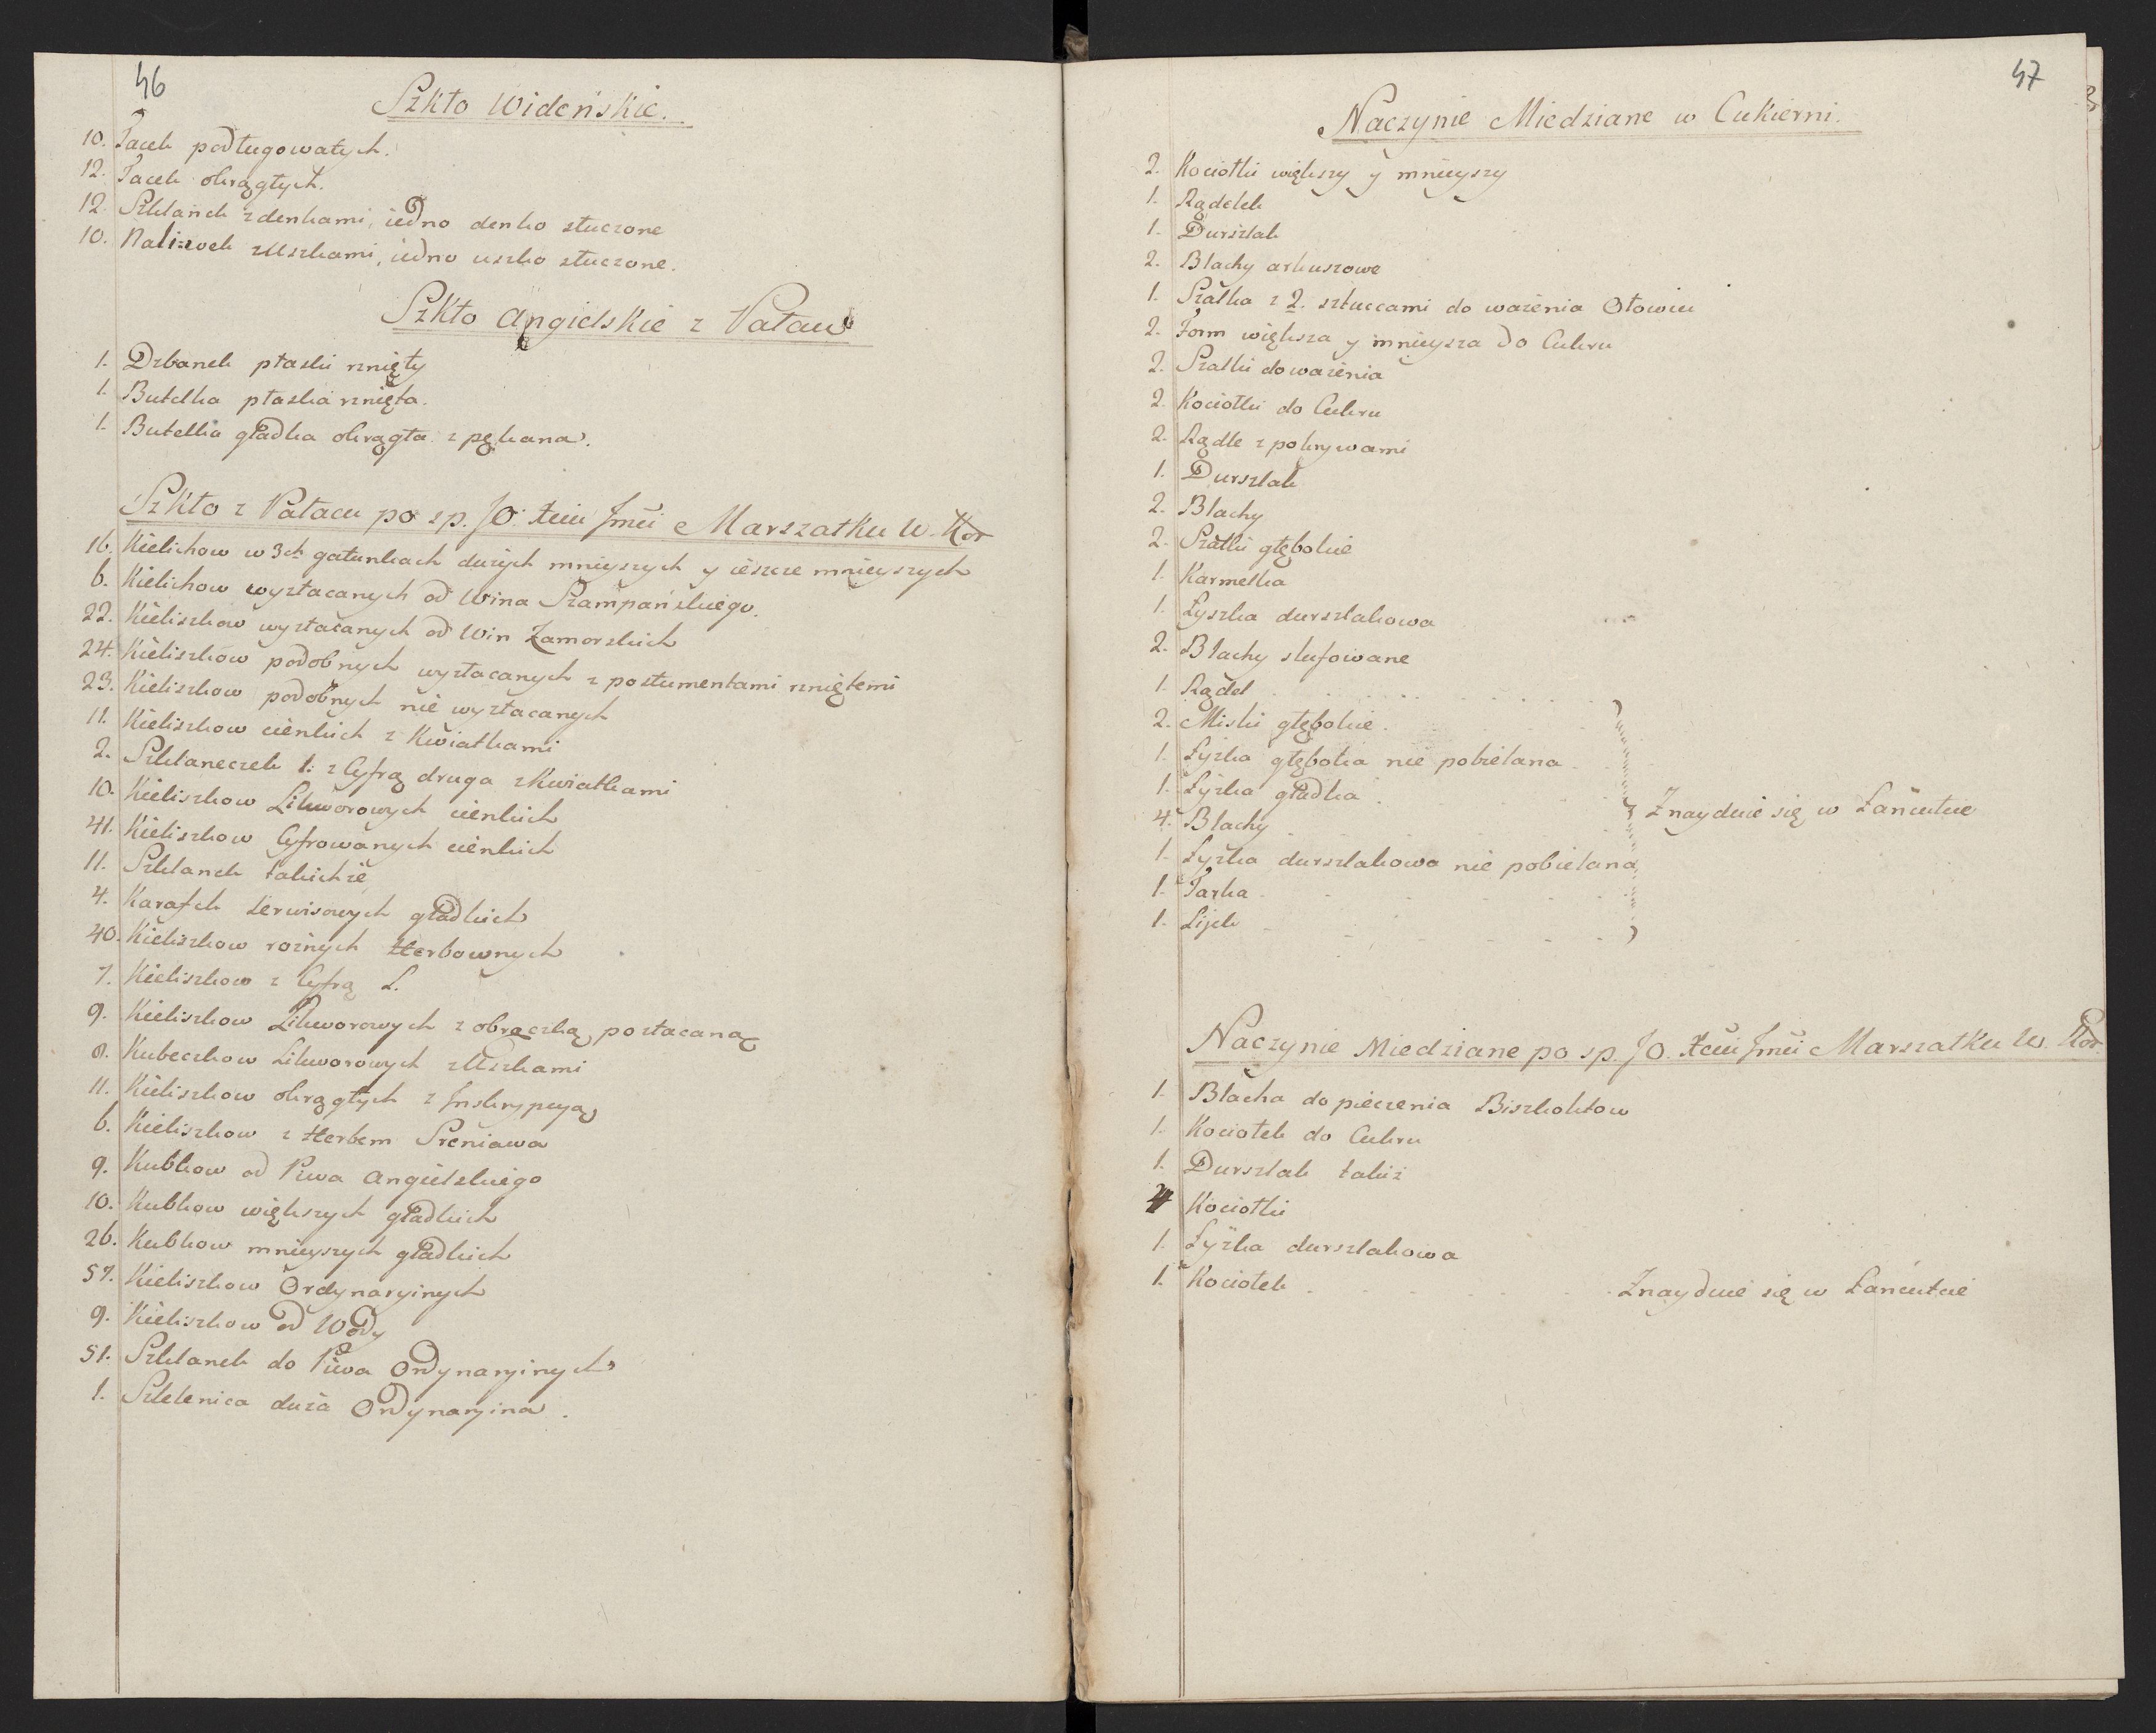 46
Szkło Wideńskie.
10. Tacek podługowatych.
12. Tacek okrągłych.
12. Szklanek z denkami, iedno denko stuczone
10. Naliwek z Uszkami, iedno uszko stuczone.
Szkło Angielskie z Pałacu
1. Dzbanek płaski rznięty
1. Butelka płaska rznięta.
1. Butelka gładka okrągła z pękana.
Szkło z Pałacu po sp. JO. Xciu Jmci Marszałku W. Kor
16. Kielichow w 3ch gatunkach dużych mnieyszych y ieszcze mnieyszych
6. Kielichow wyzłacanych od Wina Szampańskiego.
22. Kieliszkow wyzłacanych od Win Zamorskich
24. Kieliszków podobnych wyzłacanych z postumentami rzniętemi
23. Kieliszkow podobnych nie wyzłacanych
11. Kieliszkow cienkich z Kwiatkami
2. Szklaneczek 1: z Cyfrą druga z Kwiatkami
10. Kieliszkow Likworowych cienkich
41. Kieliszkow Cyfrowanych cienkich
11. Szklanek takichże
4. Karafek Serwisowych gładkich
40. Kieliszkow rożnych Herbownych
7. Kieliszkow z Cyfrą L.
9. Kieliszkow Likworowych z obrączką pozłacaną
8. Kubeczkow Likworowych z Uszkami
11. Kieliszkow okrągłych z Jnskrypcyą
6. Kieliszkow z Herbem Sreniawa
9. Kubkow od Piwa Angielskiego
10. Kubkow większych gładkich
26. Kubkow mnieyszych gładkich
57. Kieliszkow Ordynaryinych
9. Kieliszkow od Wody
51. Szklanek do Piwa Ordynaryinych
1. Szklenica duża Ordynaryina.
47
Naczynie Miedziane w Cukierni.
2. Kociołki większy y mnieyszy
1. Rądelek
1. Durszlak
2. Blachy arkuszowe
1. Szalka z 2. sztuccami do ważenia Ołowiu
2. Form większa y mnieysza do Cukru
2. Szalki do ważenia
2. Kociołki do Cukru
2. Rądle z pokrywami
1. Durszlak
2. Blachy
2. Szalki głębokie
1. Karmelka
1. Łyszka durszlakowa
2. Blachy slufowane
1. Rądel
2. Miski głębokie.
1. Łyżka głęboka nie pobielana
1. Łyżka gładka
4. Blachy
Znayduie się w Łańcutcie
1. Łyżka durszlakowa nie pobielana
1. Tarka
1. Lijek
Naczynie Miedziane po sp. JO. Xciu Jmci Marszałku W. Kor
1. Blacha do pieczenia Biszkoktow
1. Kociołek do Cukru
1. Durszlak takiż
4 Kociołki
1. Łyżka durszlakowa
1. Kociołek Znayduie się w Łańcutcie